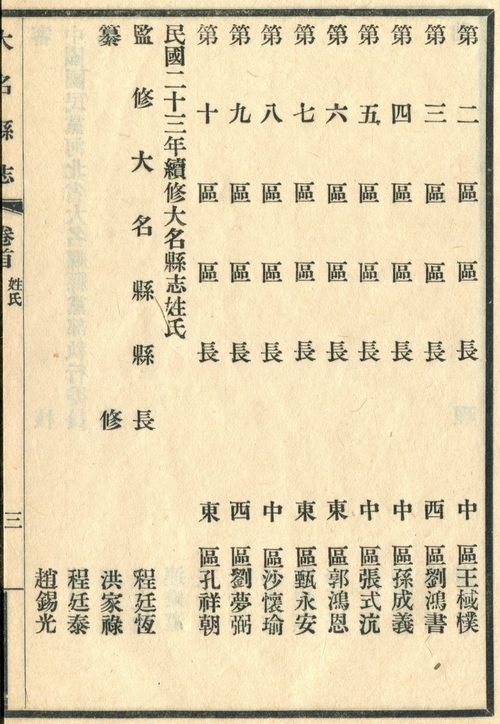 第二區區長　中區王棫樸
第三區區長　西區劉鴻書
第四區區長　中區孫成義
第五區區長　中區張式沆
第六區區長　東區郭鴻恩
第七區區長　東區甄永安
第八區區長　中區沙懷瑜
第九區區長　西區劉夢弼
第十區區長　東區孔祥朝
民國二十三年續修大名縣志姓氏
監修大名縣縣長　程廷恆
纂修　洪家祿
程廷泰
趙錫光
大名縣志　卷首　姓氏　三